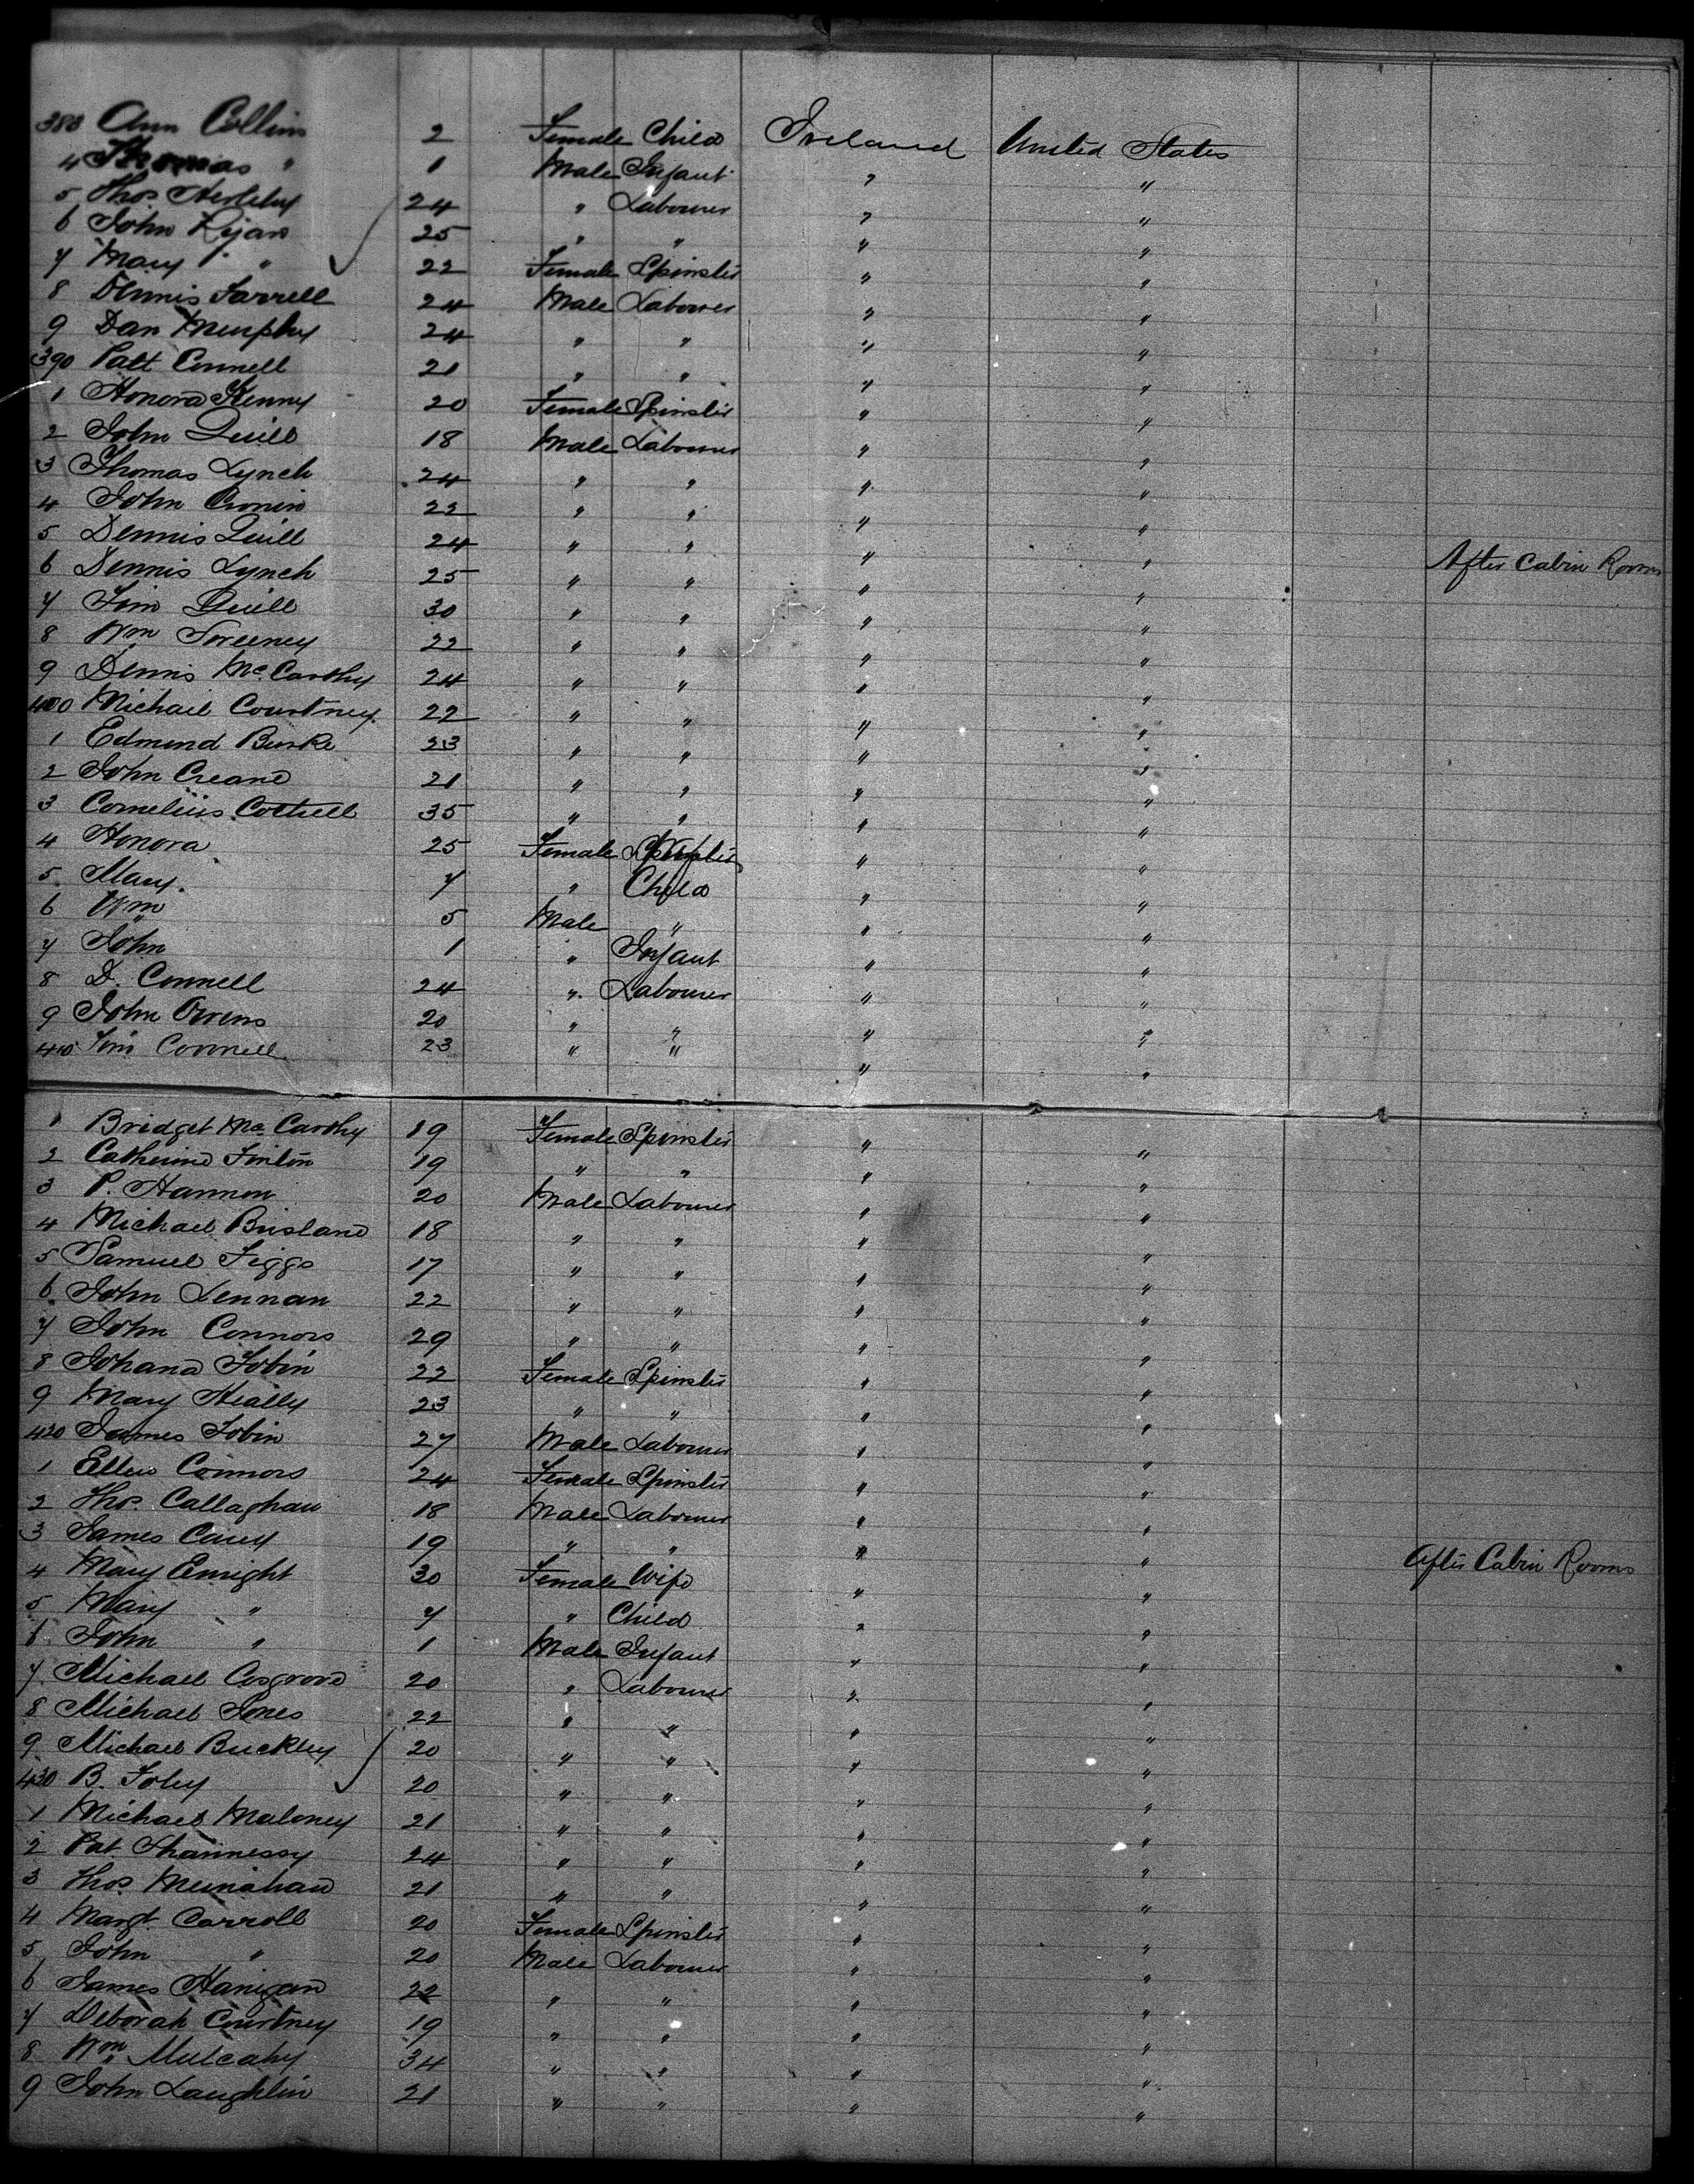 383 Ann Collins 2 Female Child Ireland United States
4 Thomas " 1 Male Infant " "
5 Thos Herlehy 24 " Labourer " "
6 John Ryan 25 " " " "
7 Mary " 22 Female Spinster " "
8 Dennis Farrell 24 Male Labourer " "
9 Dan Murphy 24 " " " "
390 Patt Connell 21 " " " "
1 Honora Kenny 20 Female Spinster " "
2 John Quill 18 Male Labourer " "
3 Thomas Lynch 24 " " " "
4 John Cronin 22 " " " "
5 Dennis Quill 24 " " " " After Cabin Rooms
6 Dennis Lynch 25 " " " "
7 Tim Quill 30 " " " "
8 Wm Sweeney 22 " " " "
9 Dennis McCarthy 24 " " " "
400 Michael Courtney 22 " " " "
1 Edmund Burke 23 " " " "
2 John Creane 21 " " " "
3 Cornelius Cottrell 35 " " " "
4 Honora 25 Female Wife " "
5 Mary 7 " Child " "
6 Wm 5 Male " " "
7 John 1 " Infant " "
8 D. Connell 24 " Labourer " "
9 John Owens 20 " " " "
410 Tim Connell 23 " " " "
1 Bridget McCarthy 19 Female Spinster " "
2 Catherine Finton 19 " " " "
3 P. Hannon 20 Male Labourer " "
4 Michael Brislane 18 " " " "
5 Samuel Figgs 17 " " " "
6 John Lennan 22 " " " "
7 John Connors 29 " " " "
8 Johana Tobin 22 Female Spinster " "
9 Mary Heally 23 " " " "
420 James Tobin 27 Male Labourer " "
1 Ellen Connors 24 Female Spinster " "
2 Thos. Callaghan 18 Male Labourer " "
3 James Carey 19 " " " " After Cabin Rooms
4 Mary Enright 30 Female Wife " "
5 Mary " 7 " Child " "
6 John " 1 Male Infant " "
7 Michael Cosgrove 20 " Labourer " "
8 Michael Jones 22 " " " "
9 Michael Buckley 20 " " " "
430 B. Foley 20 " " " "
1 Michael Maloney 21 " " " "
2 Pat Shannessy 24 " " " "
3 Thos. Meinahan 21 " " " "
4 Margt. Carroll 20 Female Spinster " "
5 John " 20 Male Labourer " "
6 James Hanigan 22 " " " "
7 Deborah Courtney 19 " " " "
8 Wm Mulcahy 34 " " " "
9 John Laughlin 21 " " " "